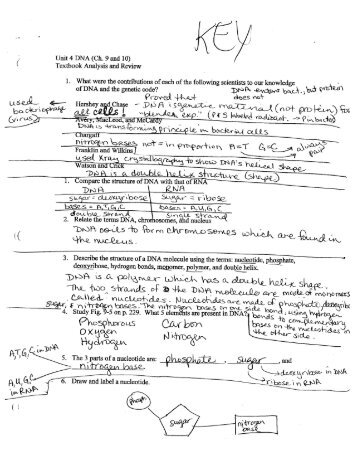 KEY
Unit 4 DNA (Ch. 9 and 10)
Textbook Analysis and Review
1. What were the contributions of each of the following scientists to our knowledge
of DNA and the genetic code?
DNA enters bact., but protein
does not
Proved that
used bacteriophage (virus)
Hershey and Chase - DNA is genetic material (not protein) for
all cells! "blender exp." (P & S labeled radioact.
Avery, MacLeod, and McCarty
DNA is transforming principle in bacterial cells
Chargaff
nitrogen bases not = in proportion A=T G=C always pair
Franklin and Wilkins
used Xray crystallography to show DNA's helical shape
Watson and Crick
DNA is a double helix structure (shape)
1. Compare the structure of DNA with that of RNA
DNA RNA
sugar = deoxyribose sugar = ribose
bases = A,T,G,C bases = A,U,G,C
double strand single strand
2. Relate the terms DNA, chromosomes, and nucleus
DNA coils to form chromosomes which are found in
the nucleus.
3. Describe the structure of a DNA molecule using the terms: nucleotide, phosphate,
deoxyribose, hydrogen bonds, monomer, polymer, and double helix.
DNA is a polymer which has a double helix shape.
The two strands of the DNA molecule are made of monomers
called nucleotides. Nucleotides are made of phosphate, deoxyribose
sugar, & nitrogen bases. The nitrogen bases on one side bond, using hydrogen
bonds to complementary
bases on the nucleotides on
the other side.
4. Study Fig. 9-5 on p. 229. What 5 elements are present in DNA?
Phosphorous Carbon
Oxygen Nitrogen
Hydrogen
5. The 3 parts of a nucleotide are: phosphate, sugar, and
nitrogen base
A,T,G,C in DNA
A,U,G,C in RNA
deoxyribose in DNA
ribose in RNA
6. Draw and label a nucleotide.
phosph.
sugar
nitrogen
base